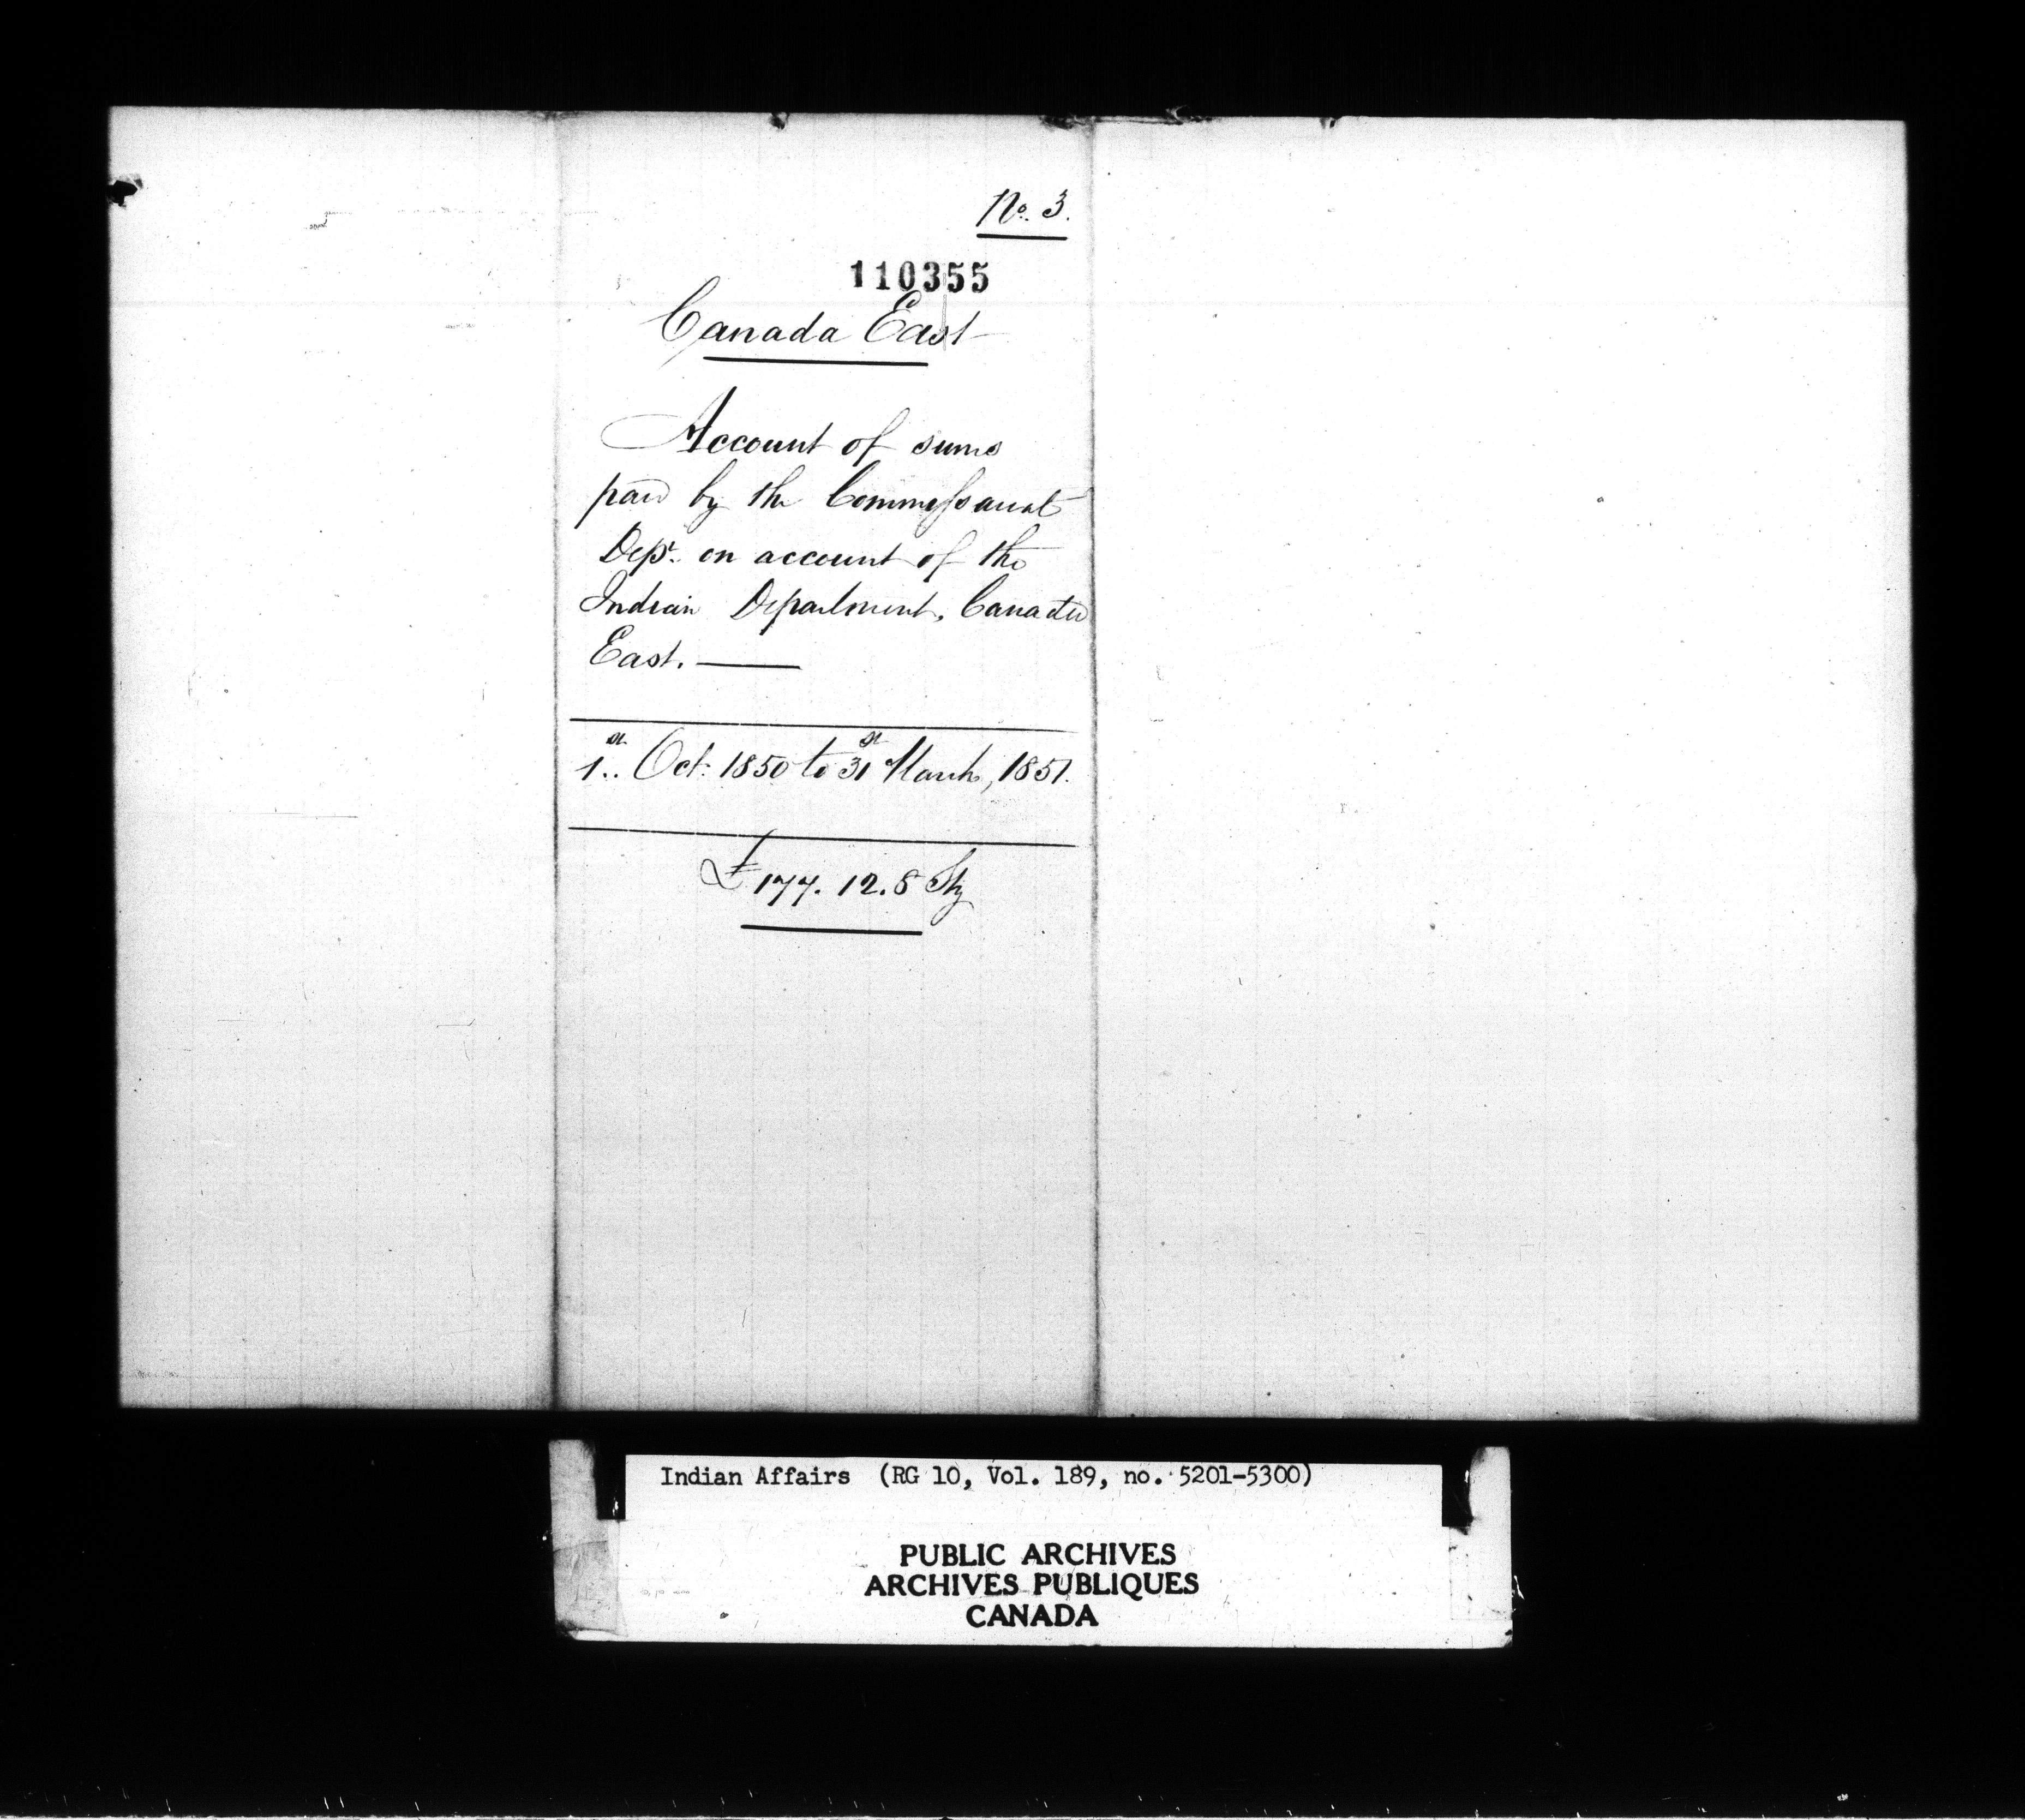 No. 3.
110355
Canada East
Account of sums
paid by the Commissariat
Dept. on account of the
Indian Department, Canada
East.
1st Oct: 1850 to 31st March, 1851.
£177. 12. 8 Stg
Indian Affairs (RG 10, Vol. 189, no. 5201-5300)
PUBLIC ARCHIVES
ARCHIVES PUBLIQUES
CANADA